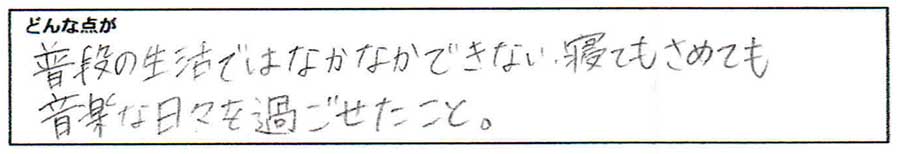 どんな点が
普段の生活ではなかなかできない、寝てもさめても
音楽な日々を過ごせたこと。